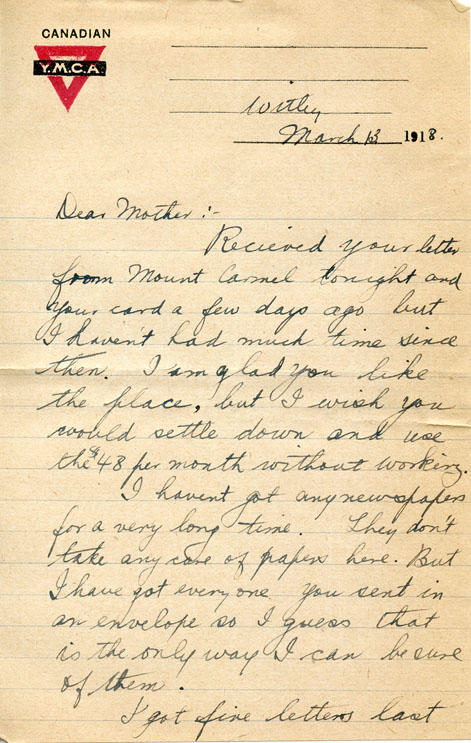 CANADIAN
Y.M.C.A.
Witley
March 13 1918.
Dear Mother :-
Recieved your letter
from Mount Carmel tonight and
your card a few days ago but
I haven't had much time since
then. I am glad you like
the place, but I wish you
would settle down and use
the $48 per month without working.
I havent got any newspapers
for a very long time. They don't
take any care of papers here. But
I have got everyone you sent in
an envelope so I guess that
is the only way I can be sure
of them.
I got five letters last